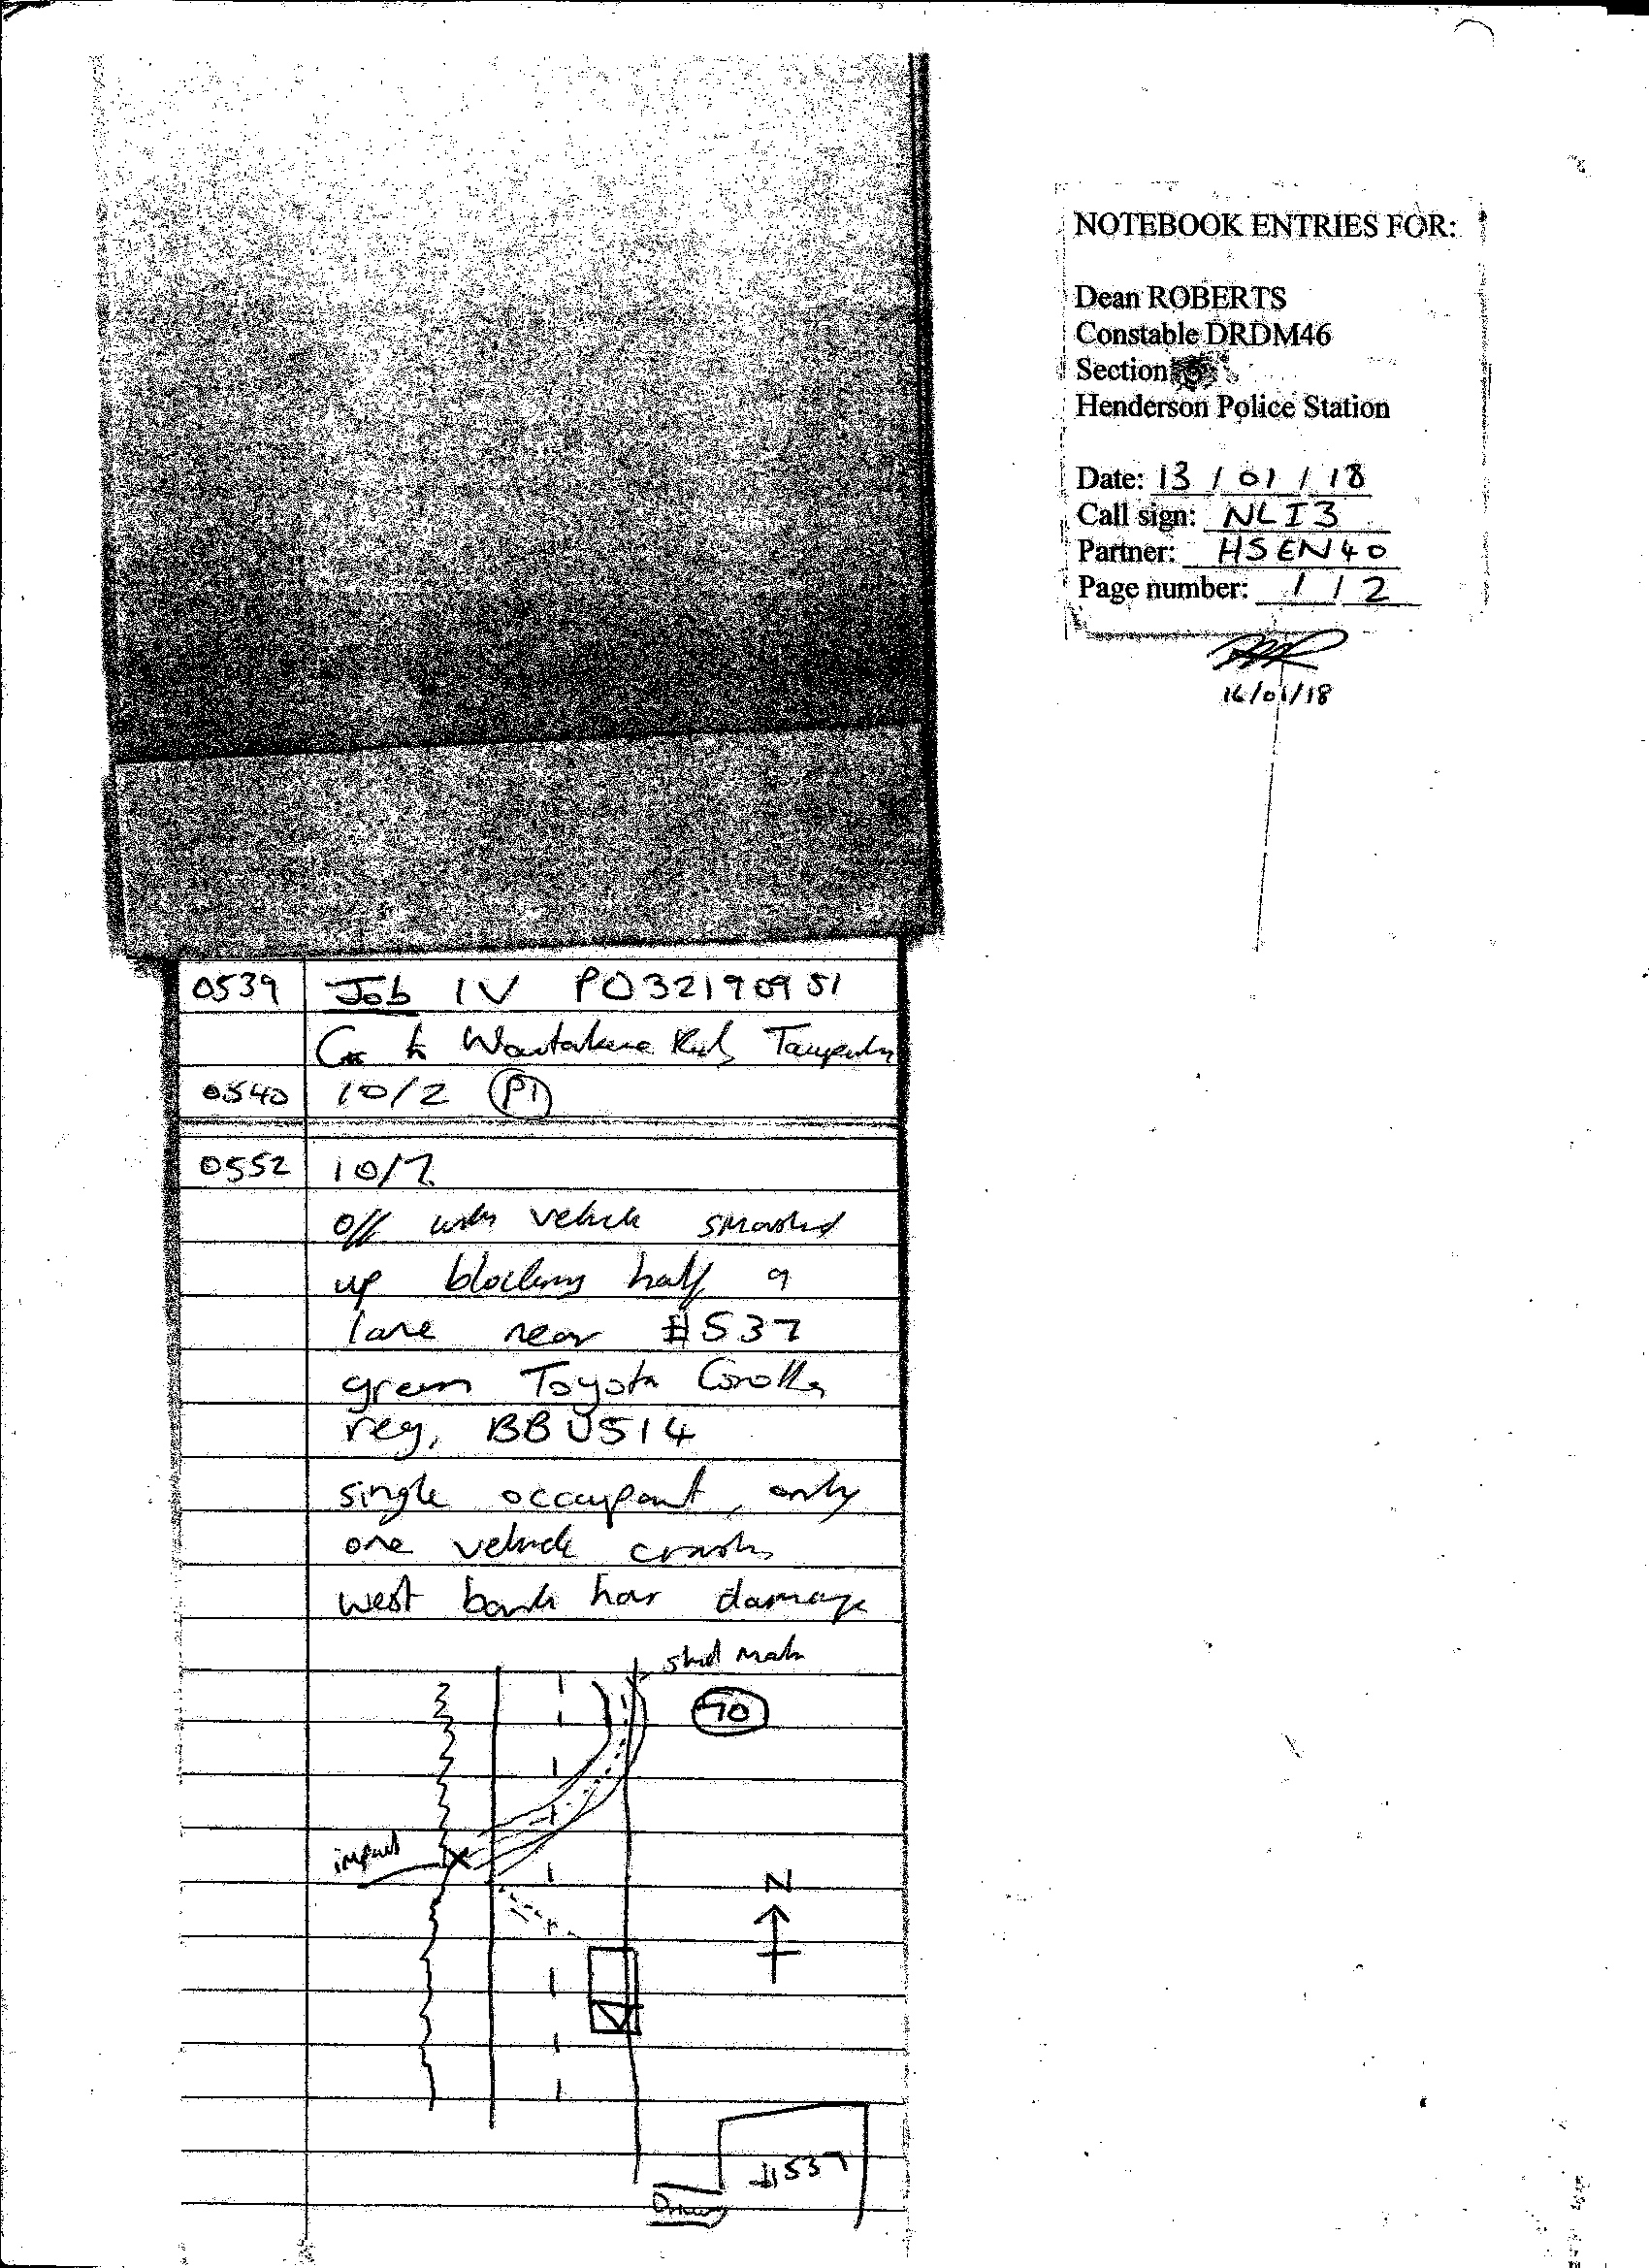 NOTEBOOK ENTRIES FOR:
Dean ROBERTS
Constable DRDM46
Section
Henderson Police Station
Date: 13 / 01 / 18
Call sign: NLI3
Partner: HSEN40
Page number: 1 / 2
16/01/18
0539 Job 1V P032190951
to Waitakere Rd, Taupaki
0540 10/2 P1
0552 10/7
off with vehicle smashed
up blocking half a
lane near #537
green Toyota Corolla
reg, BBU514
single occupant, only
one vehicle crash
west bank has damage
skid mark
70
impact
N
#537
Driveway